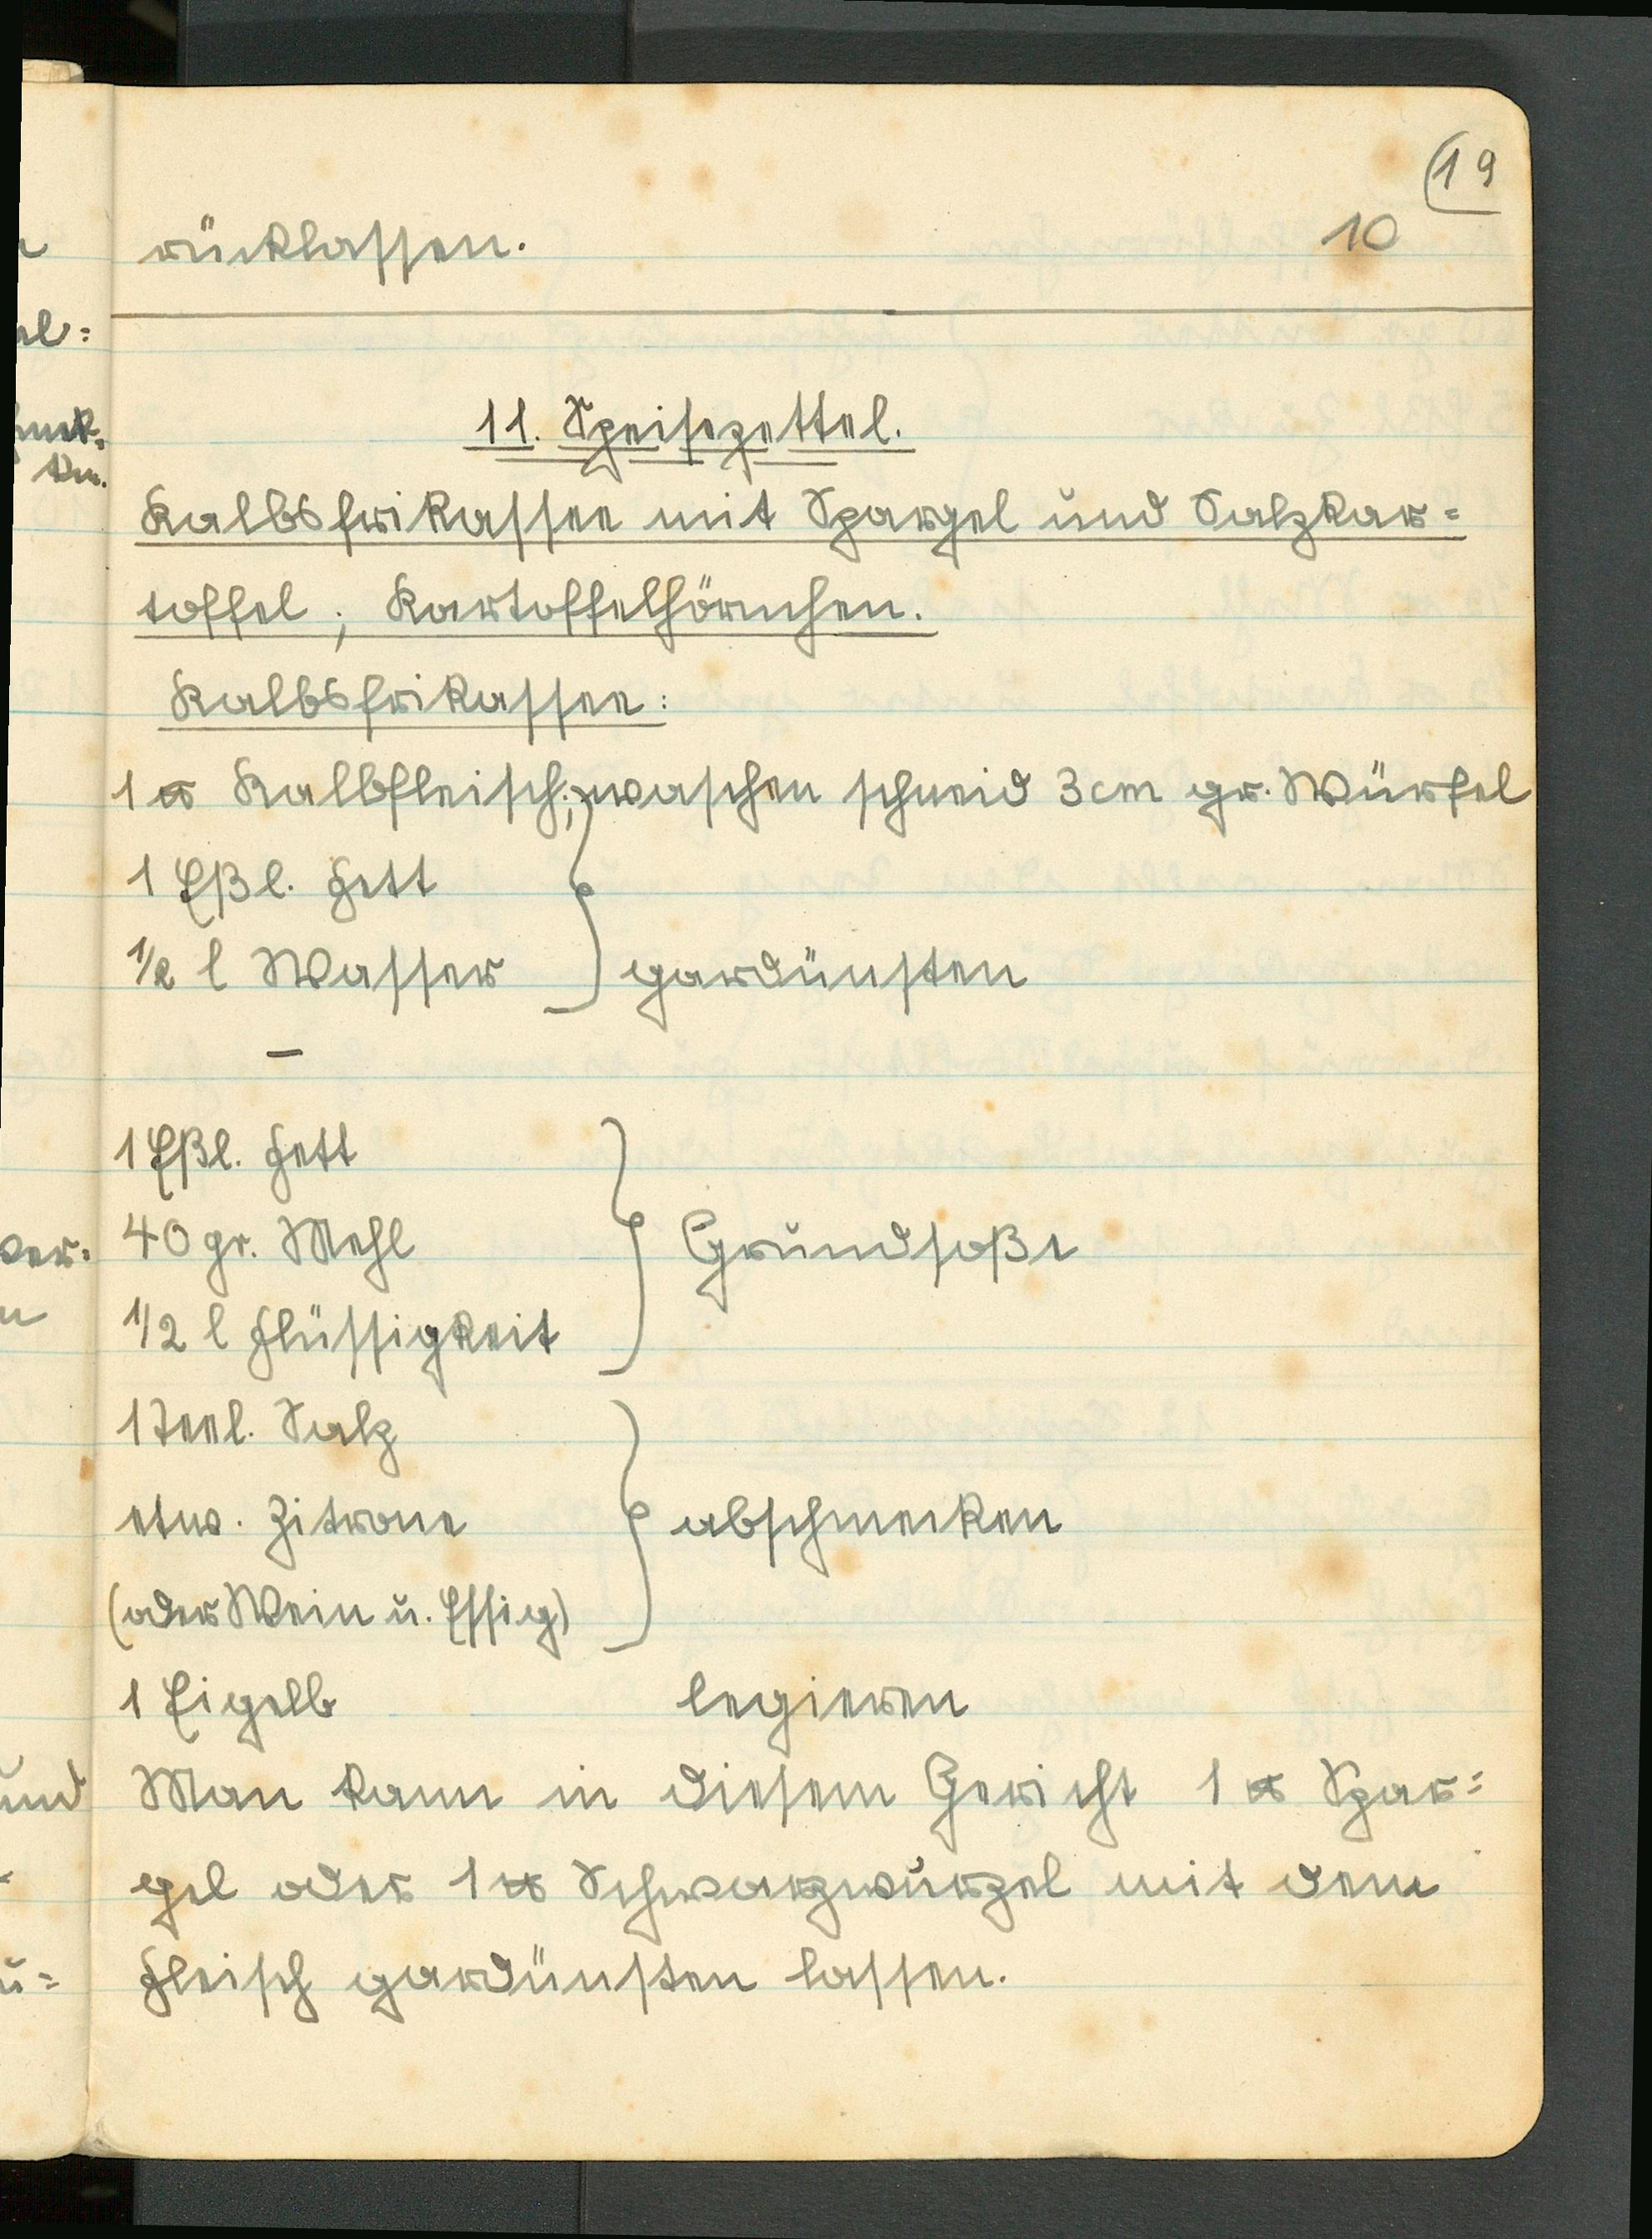 19
10
rücklassen.
11. Speisezettel.
Kalbsfrikassee mit Spargel und Salzkar=
toffel, Kartoffelhörnchen.
Kalbsfrikassee:
1 ℔ Kalbfleisch; waschen schneid 3cm gr. Würfel
1 Eßl. Fett
1/2 l Wasser } gardünsten
–
1 Eßl. Fett
40 gr. Mehl } Grundsoße
1/2 l Flüssigkeit
1 Teel. Salz
etw. Zitrone } abschmecken
(oder Wein u. Essig)
1 Eigelb legieren
Man kann in diesem Gericht 1 ℔ Spar=
gel oder 1 ℔ Schwarzwurzel mit dem
Fleisch gardünsten lassen.